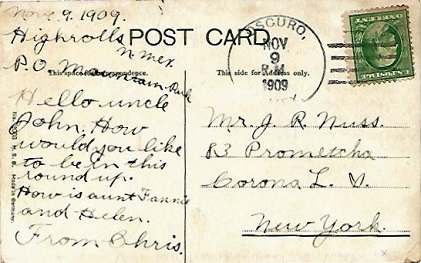 Nov. 9. 1909.
Highrolls
N. Mex.
P.O. Mountain Park
POST CARD.
This space for correspondence.
This side for Address only.
OSCURO,
NOV
9
1909
Hello uncle
John. How
would you like
to be in this
round up.
How is aunt Fannie
and Helen.
From Chris.
Mr. J. R. Nuss.
R3 Prometcha
Corona L. I.
New York.